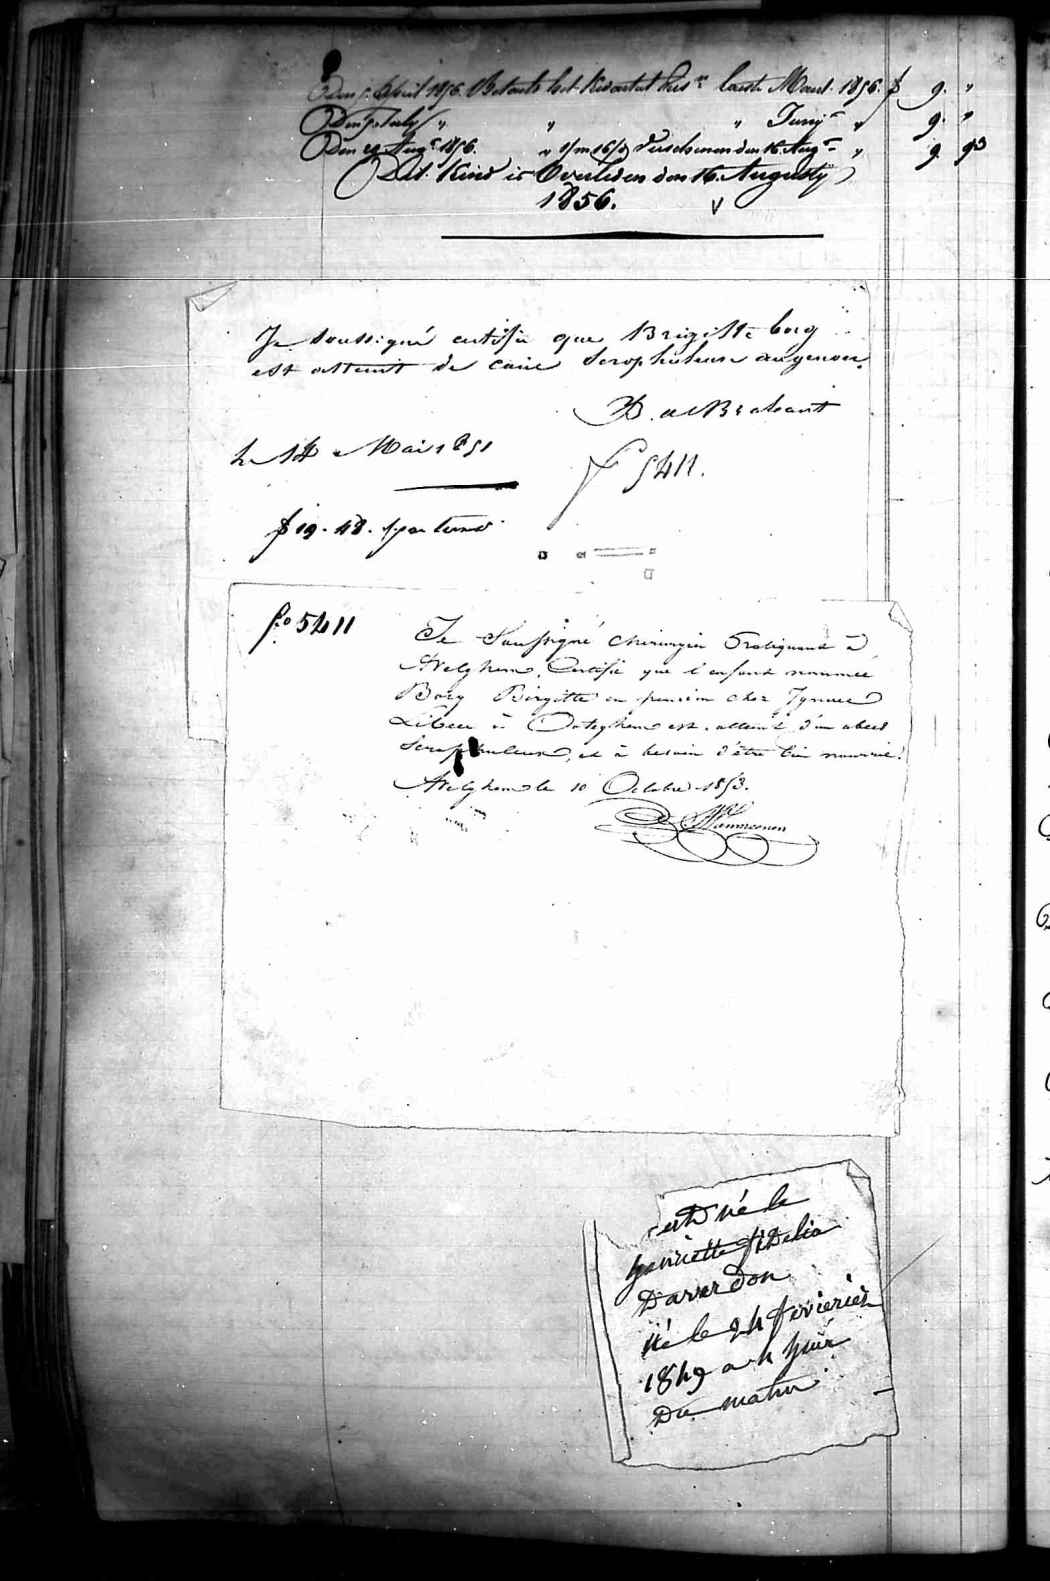 Den 5. April 1856. Betaald het Kwartaal laaste Maart 1856. f 9. "
Den July " " " Juny " 9. "
Den 29 Aug. 1856. " verschenen den 16 Aug. " 9 93
Dit Kind is Overleden den 16. Augusty
1856.
Je soussigné certifie que Brigitte Borg
est atteint de carie scrophuleuse au genou.
D. de Brabant
le 14 Mai 1851
f 5411.
f 19. 48. par
fo 5411
Je Soussigné chirurgien Pratiquant à
Avelghem, Certifie que l'enfant nommée
Borg Birgitte en pension chez
à Ooteghem est atteint d'un abces
Scrophuleux, et à besoin d'être bien nourrie.
Avelghem le 10 Octobre 1853.
né le
henriette fidelia
Davardon
né le 24 fevierier
1849 a 4
Du matin